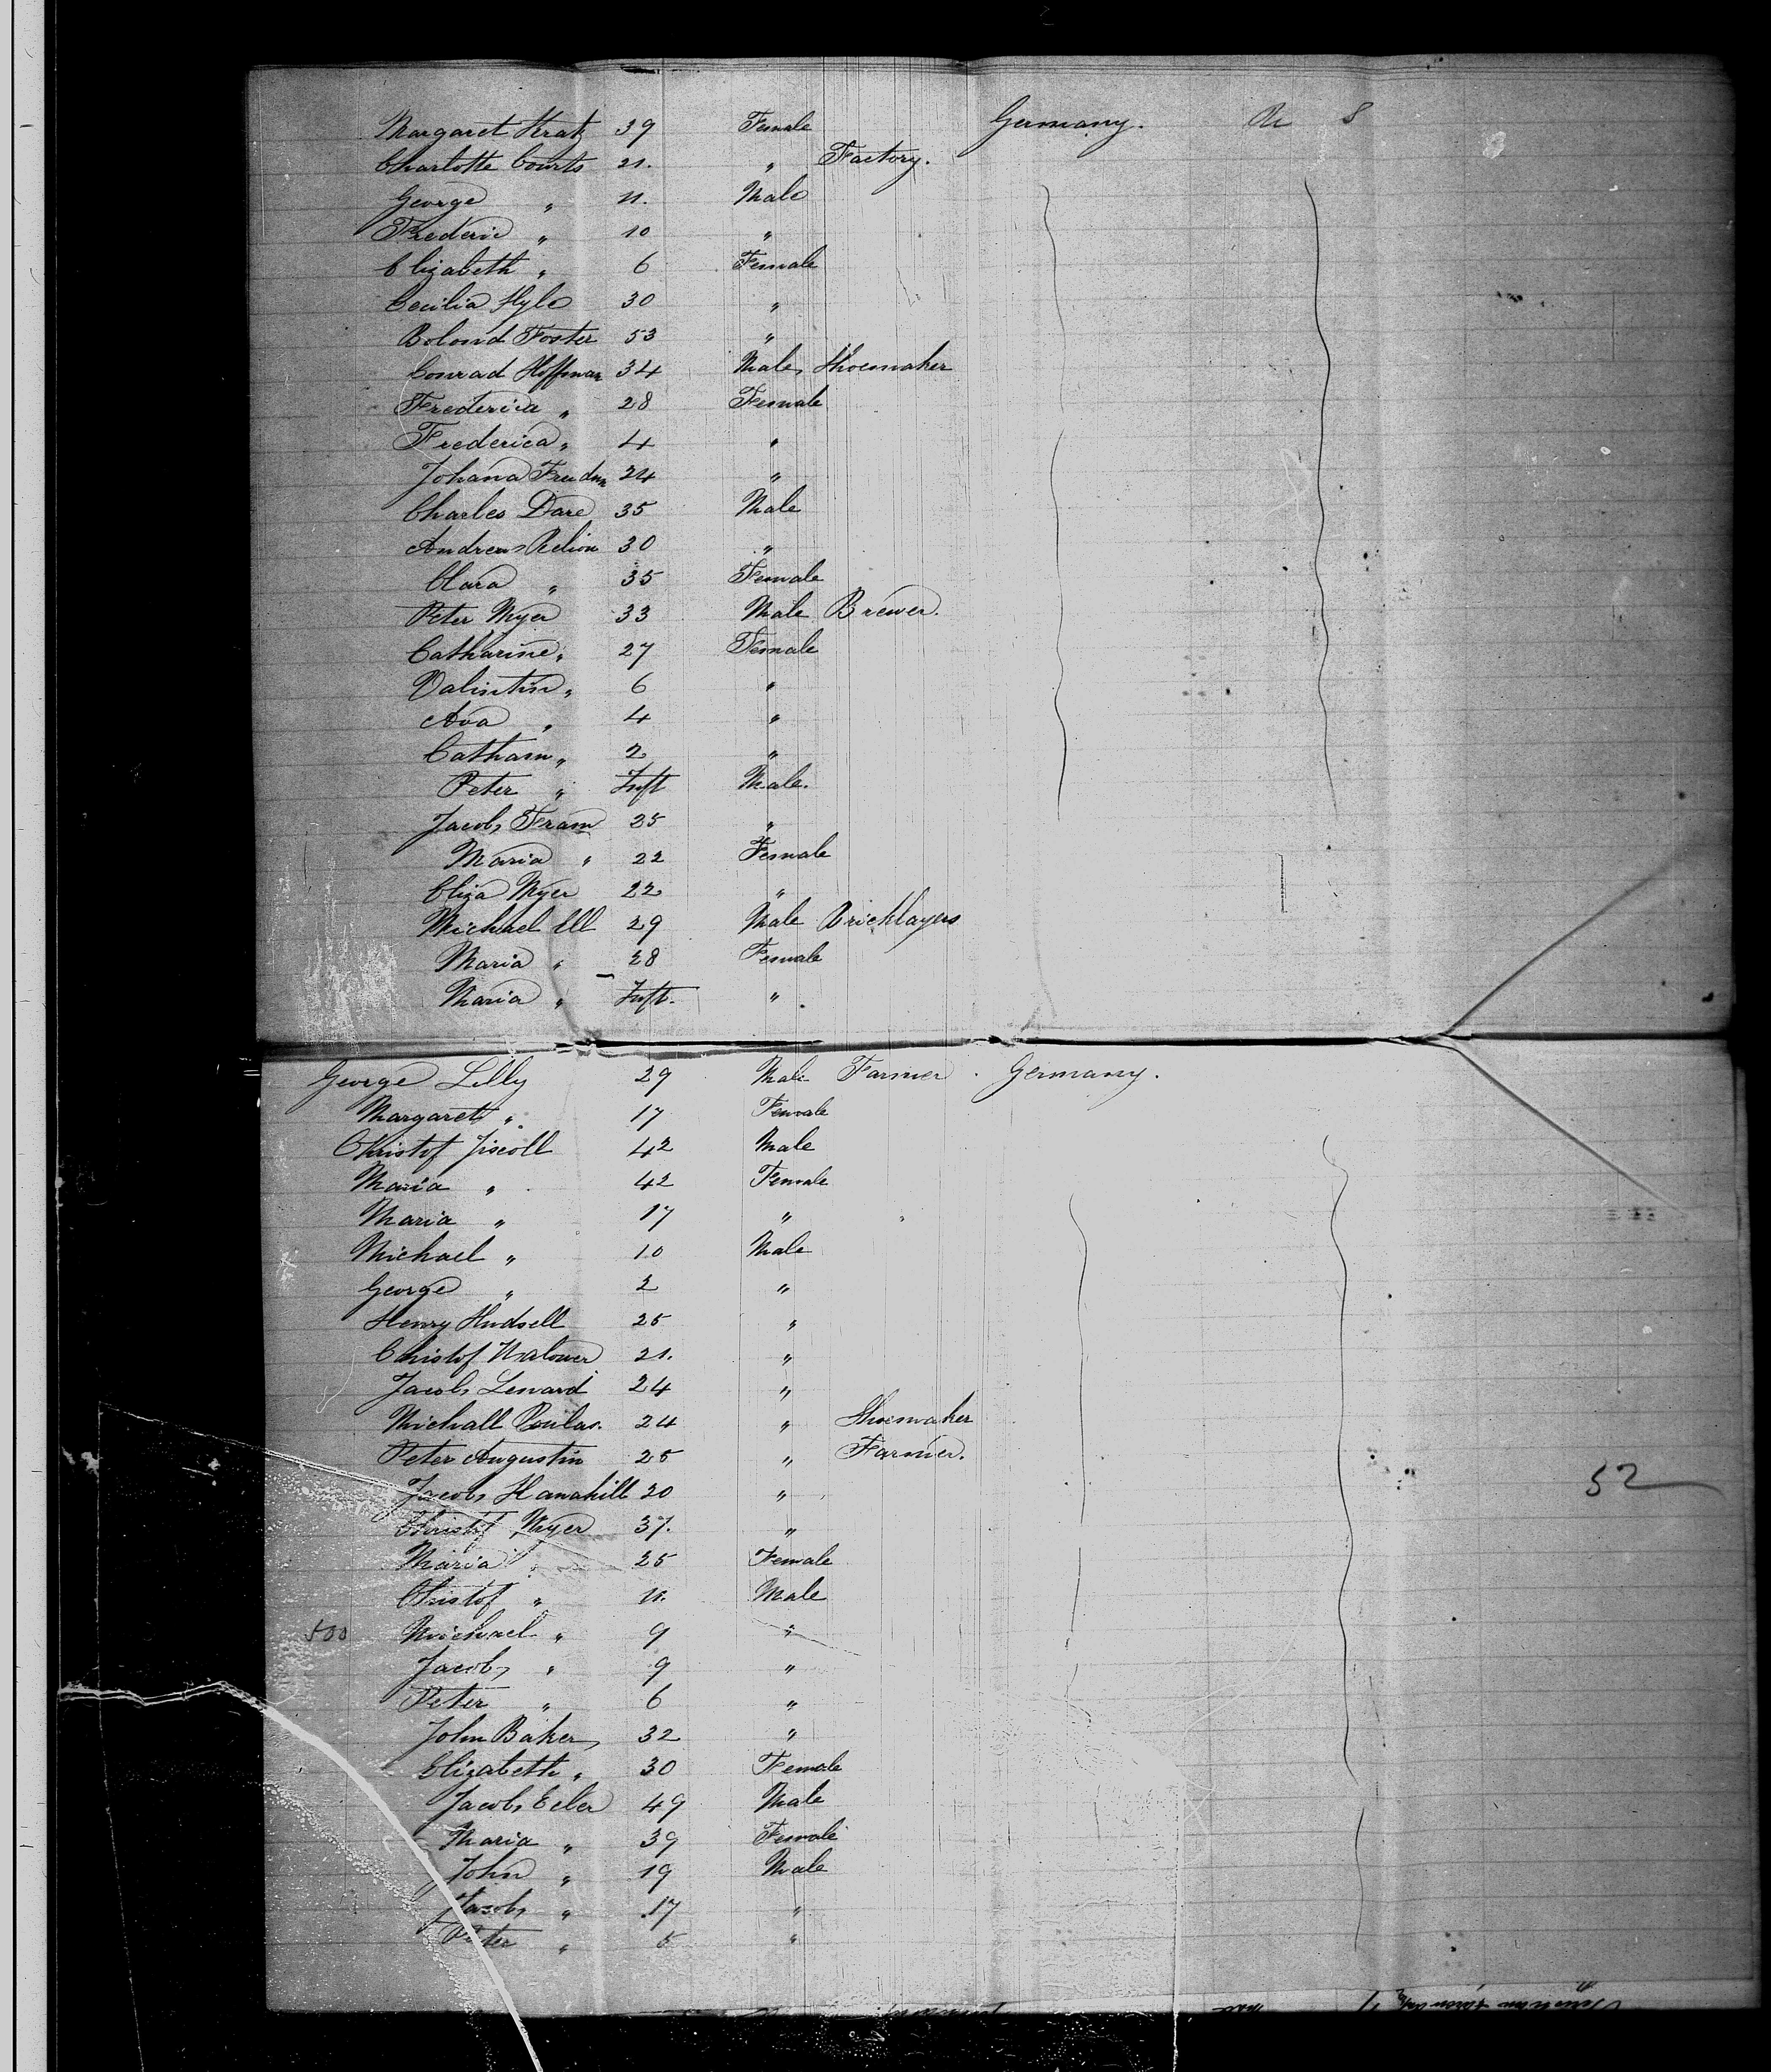 Margaret Kratz 39 Female Germany. U S
Charlotte Courts 21. " Factory.
George " 11. Male
Frederic " 10 "
Elizabeth " 6 Female
Cecilia Hyle 30 "
Bolond Foster 53 "
Conrad Hoffman 34 Male Shoemaker
Frederica " 28 Female
Frederica " 4 "
Johana 24 "
Charles Dare 35 Male
Andrew 30 "
Clara " 35 Female
Peter Myer 33 Male Brewer.
Catharine " 27 Female
Valintin " 6 "
Ava " 4 "
Catharn " 2 "
Peter " Inft Male.
Jacob Fram 25 "
Maria " 22 Female
Eliza Myer 22 "
Michael Ill 29 Male Bricklayers
Maria " 28 Female
Maria " Inft. "
George Lilly 29 Male Farmer. Germany.
Margaret " 17 Female
Christof Jiscoll 42 Male
Maria " 42 Female
Maria " 17 "
Michael " 10 Male
George " 2 "
Henry Hudsell 25 "
Christof 21. "
Jacob Lenard 24 "
Michall 24 " Shoemaker
Peter Augustin 25 " Farmer.
Jacob Hanahill 20 " 52
Christof Myer 37. "
Maria " 25 Female
Christof " 11. Male
500 Michael " 9 "
Jacob " 9 "
Peter " 6 "
John Baker 32 "
Elizabeth " 30 Female
Jacob Eeler 49 Male
Maria " 39 Female
John " 19 Male
Jacob " 17 "
Peter " 5 "